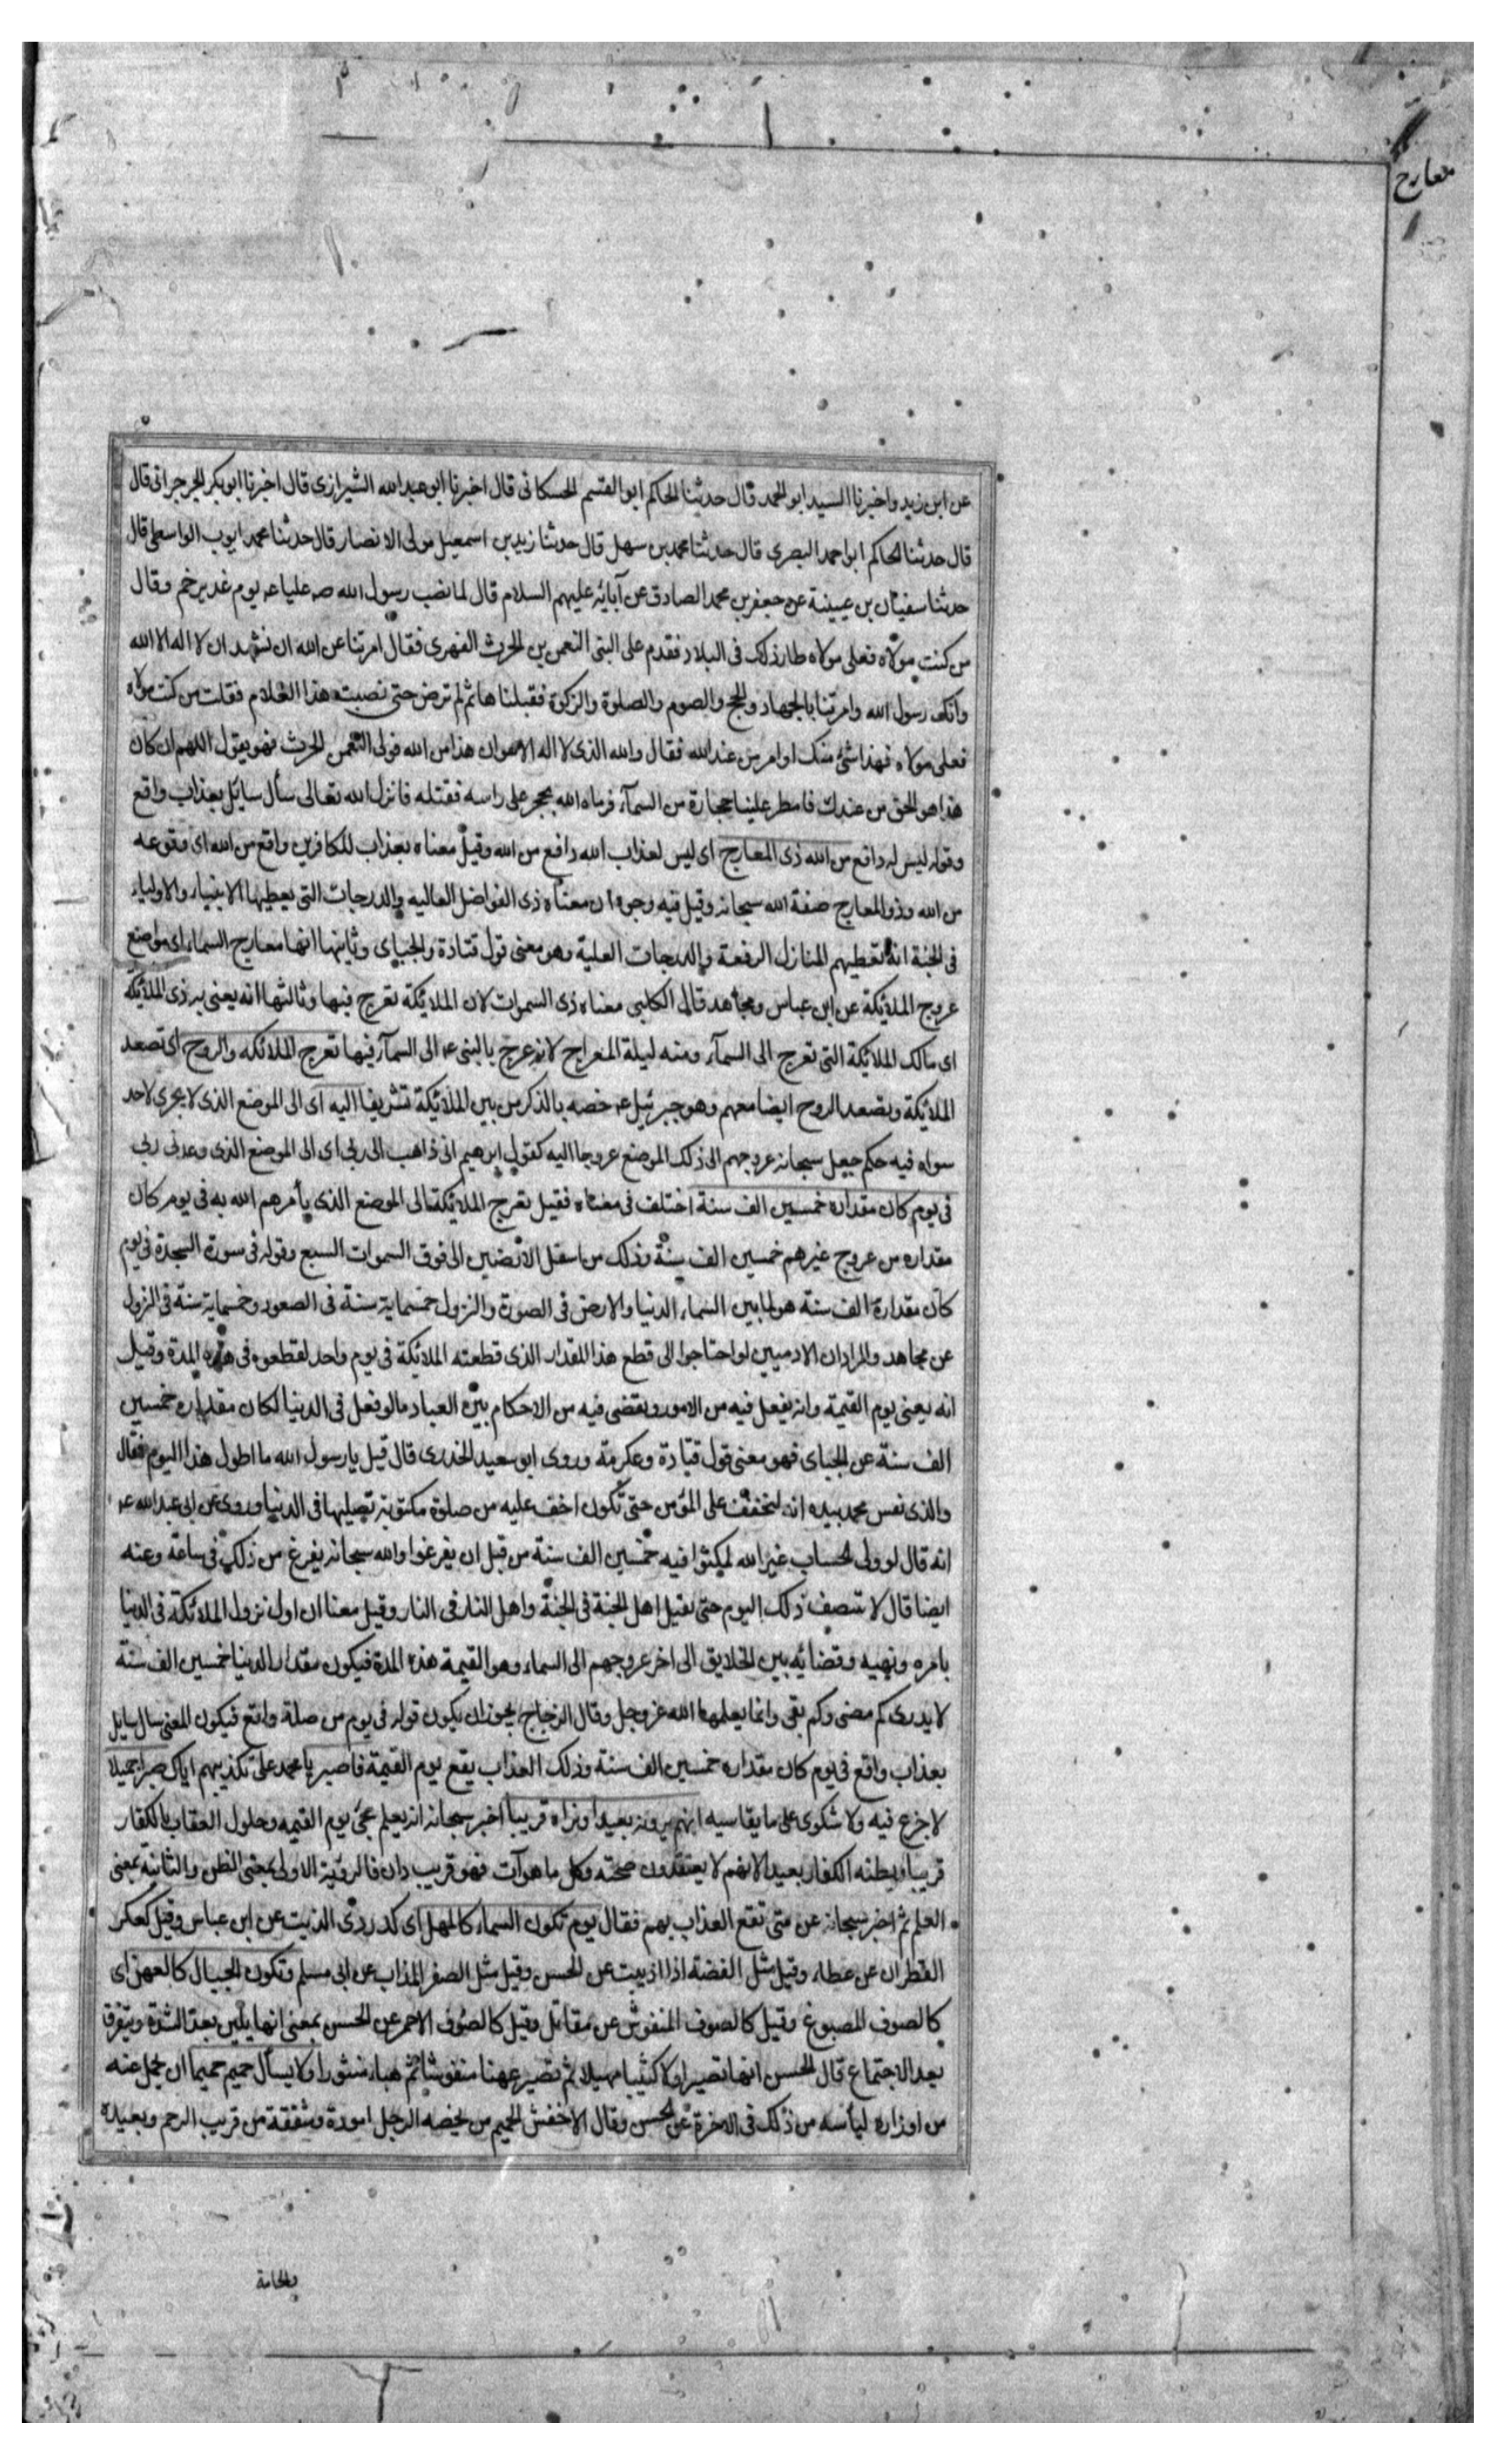 معارج
عن ابن زيد واخبرنا السيد ابو الحمد قال حدثنا الحاكم ابو القسم الحسكانى قال اخبرنا ابو عبد الله الشيرازى قال اخبرنا ابو بكر الجرجرانى قال
قال حدثنا الحاكم ابو احمد البصرى قال حدثنا محمد بن سهل قال حدثنا زيد بن اسمعيل مولى الانصار قال حدثنا محمد ايوب الواسطى قال
حدثنا سفيان بن عيينة عن جعفر بن محمد الصادق عن آبائه عليهم السلام قال لما نصب رسول الله صه عليا عه يوم غدير خم وقال
من كنت مولاه فعلى مولاه طار ذلك فى البلاد فقدم على النبى النعمن بن الحرث الفهرى فقال امرتنا عن الله ان نشهد ان لا اله الا الله
وانك رسول الله وامرتنا بالجهاد والحج والصوم والصلوة والزكوة فقبلنا ها ثم لم ترض حتى نصبت هذا الغلام فقلت من كنت مولاه
فعلى مولاه فهذا شئ منك او امر من عند الله فقال والله الذى لا اله الا هو ان هذا من الله فولى النعمن الحرث فهو يقول اللهم ان كان
هذا هو الحق من عندك فامطر علينا حجارة من السمآء فرماه الله بحجر على راسه فقتله فانزل الله تعالى سأل سائل بعذاب واقع
وقوله ليس له دافع من الله ذى المعارج اى ليس لعذاب الله دافع من الله وقيل معناه بعذاب للكافرين واقع من الله اى وقوعه
من الله وذو المعارج صفة الله سبحانه وقيل فيه وجوه ان معناه ذى الفواضل العاليه والدرجات التى يعطيها الانبياء والاولياء
فى الجنة انه تعطيهم المنازل الرفعة والدرجات العلية وهو معنى قول قتادة والجبباى وثانيها انها معارج السماء اى مواضع
عروج الملائيكة عن ابن عباس ومجاهد قال الكلبى معناه ذى السموات لان الملائيكة تعرج فيها وثالثها انه يعنى به ذى الملائيكة
اى مالك الملائيكة التى تعرج الى السمآء ومنه ليلة المعراج لانه عرج بالنبى عه الى السمآء فيها تعرج الملائكه والروح اى تصعد
الملائيكة ويصعد الروح ايضا معهم وهو جبرئيل عه خصه بالذكر من بين الملائيكة تشريفا اليه اى الى الموضع الذى لا يجرى لاحد
سواه فيه حكم جعل سبحانه عروجهم الى ذلك الموضع عروجا اليه كقول ابرهيم انى ذاهب الى ربى اى الى الموضع الذى وعدنى ربى
فى يوم كان مقداره خمسين الف سنة اختلف فى معناه فقيل تعرج الملائيكة الى الموضع الذى يأمرهم الله به فى يوم كان
مقداره من عروج غيرهم خمسين الف سنة وذلك من اسفل الارضين الى فوق السموات السبع وقوله فى سورة السجدة فى يوم
كان مقداره الف سنة هو لما بين السماء الدنيا والارض فى الصورة والنزول خمسماية سنة فى الصعود وخمسماية سنة فى النزول
عن مجاهد والمراد ان الادميين لو احتاجوا الى قطع هذا المقدار الذى قطعته الملائيكة فى يوم واحد لقطعوه فى هذه المدة وقيل
انه يعنى يوم القيمة وانه يفعل فيه من الامور ويقضى فيه من الاحكام بين العباد مالو فعل فى الدنيا لكان مقداره خمسين
الف سنة عن الجباى فهو معنى قول قتادة وعكرمة وروى ابو سعيد الخدرى قال قيل يا رسول الله ما اطول هذا اليوم فقال
والذى نفس محمد بيده انه ليخفف على المؤمن حتى تكون اخف عليه من صلوة مكتوبة تصليها فى الدنيا وروى عن ابى عبد الله عه
انه قال لو ولى الحساب غير الله لمكثوا فيه خمسين الف سنة من قبل ان يفرغوا والله سبحانه يفرغ من ذلك فى ساعة وعنه
ايضا قال لا تنصف ذلك اليوم حتى يقيل اهل الجنة فى الجنة واهل النار فى النار وقيل معناه ان اول نزول الملائكة فى الدنيا
بامره ونهيه وقضائه بين الخلايق الى اخر عروجهم الى السماء وهو القيمة هذه المدة فيكون مقدار الدنيا خمسين الف سنة
لا يدرى كم مضى وكم بقى وانما يعلمها الله عز وجل وقال الزجاج يجوز ان يكون قوله فى يوم من صلة واقع فيكون المعنى سال سايل
بعذاب واقع فى يوم كان مقداره خمسين الف سنة وذلك العذاب يقع يوم القيمة فاصبر يا محمد على تكذيبهم اياك صبرا جميلا
لا جزع فيه ولا شكوى على ما يقاسيه انهم يرونه بعيدا ونراه قريبا اخبر سبحانه انه يعلم مجئ يوم القيمه وحلول العقاب بالكفار
قريبا ويظنه الكفار بعيدا لانهم لا يعتقدون صحته وكل ما هو آت فهو قريب دان فالرؤية الاولى بمعنى الظن والثانية بمعنى
العلم ثم اخبر سبحانه عن متى تقع العذاب بهم فقال يوم تكون السماء كالمهل اى كدردى الزيت عن ابن عباس وقيل كعكر
القطران عن عطاء وقيل مثل الفضة اذا اذيبت عن الحسن وقيل مثل الصفر المذاب عن ابى مسلم وتكون الجبال كالعهن اى
كالصوف المصبوغ وقيل كالصوف المنفوش عن مقاتل وقيل كالصوف الاحمر عن الحسن بمعنى انها يلين بعد الشدة ويتفرق
بعد الاجتماع قال الحسن انها تصير اولا كثيبا مهيلا ثم تصير عهنا منفوشا ثم هباء منثورا ولا يسأل حميم حميما ان يحمل عنه
من اوزاره ليأسه من ذلك فى الاخرة عن الحسن وقال الاخفش الحميم من يخصه الرجل امودة وشفقة من قريب الرحم وبعيده